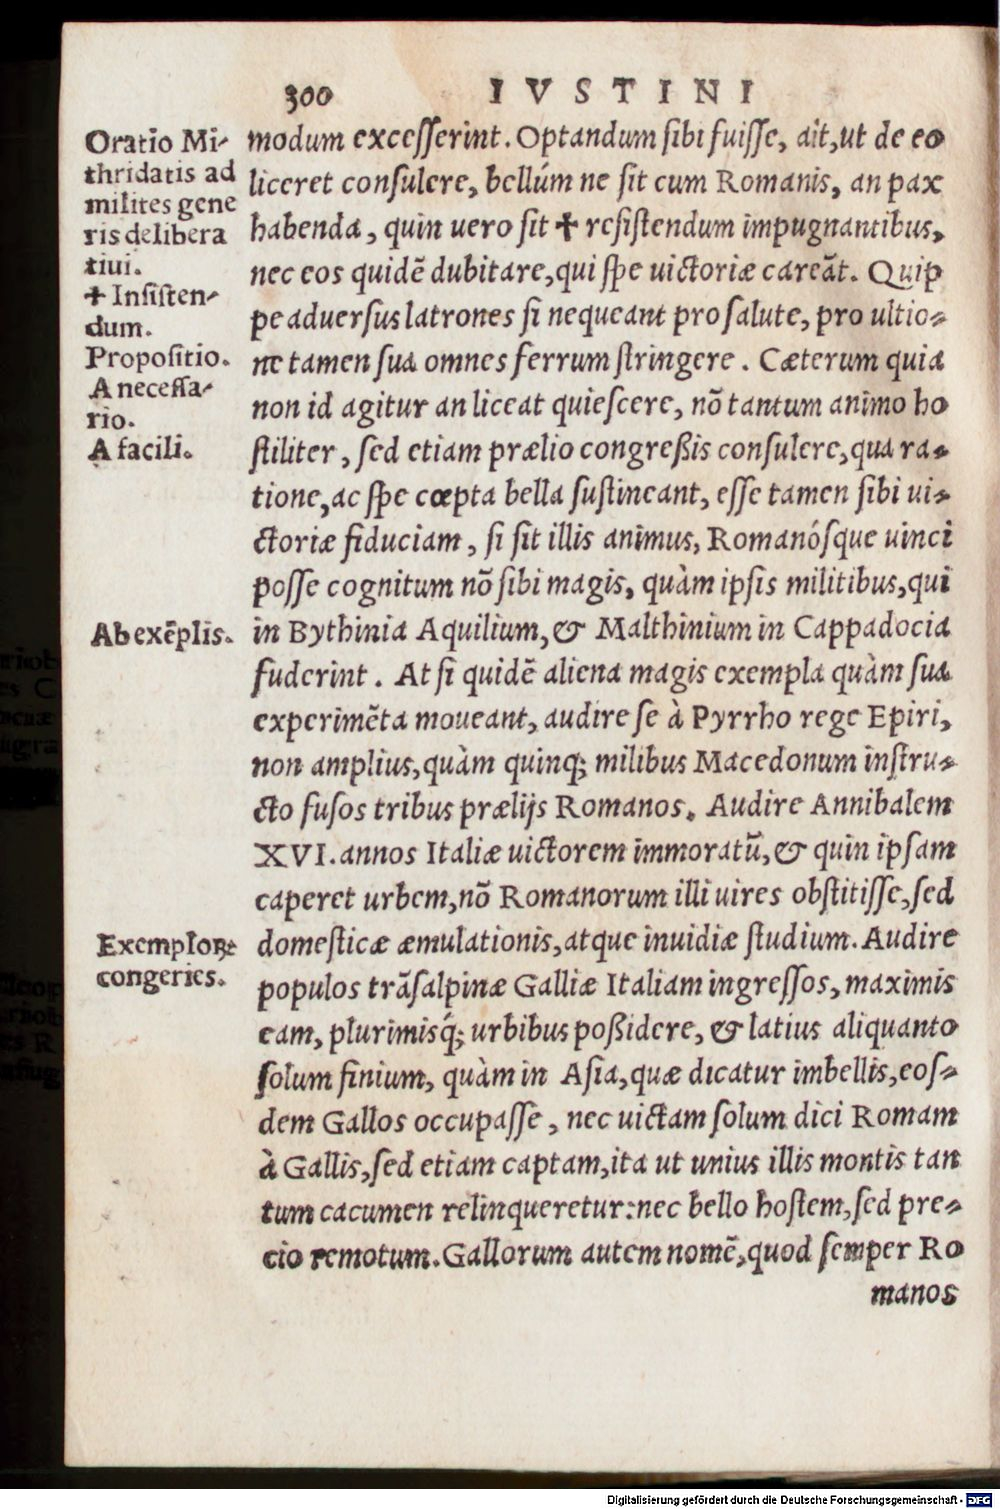 300 IVSTINI
Oratio Mi-
thridatis ad
milites gene
ris delibera
tiui.
✝ Insisten-
dum.
Propositio.
A necessa-
rio.
A facili.
Ab exẽplis.
Exemploꝝ
congeries.
modum excesserint. Optandum sibi fuisse, ait, ut de eo
liceret consulere, bellúm ne sit cum Romanis, an pax
habenda, quin uero sit ✝ resistendum impugnantibus,
nec eos quidẽ dubitare, qui spe uictoriæ careãt. Quip
pe aduersus latrones si nequeant pro salute, pro ultio-
ne tamen sua omnes ferrum stringere. Cæterum quia
non id agitur an liceat quiescere, nõ tantum animo ho
stiliter, sed etiam prælio congreßis consulere, qua ra-
tione, ac spe cœpta bella sustineant, esse tamen sibi ui-
ctoriæ fiduciam, si sit illis animus, Romanósque uinci
posse cognitum nõ sibi magis, quàm ipsis militibus, qui
in Bythinia Aquilium, & Malthinium in Cappadocia
fuderint. At si quidẽ aliena magis exempla quàm sua
experimẽta moueant, audire se à Pyrrho rege Epiri,
non amplius, quàm quinq; milibus Macedonum instru-
cto fusos tribus prælijs Romanos. Audire Annibalem
XVI. annos Italiæ uictorem immoratũ, & quin ipsam
caperet urbem, nõ Romanorum illi uires obstitisse, sed
domesticæ æmulationis, atque inuidiæ studium. Audire
populos trãsalpinæ Galliæ Italiam ingressos, maximis
eam, plurimisq́; urbibus poßidere, & latius aliquanto
solum finium, quàm in Asia, quæ dicatur imbellis, eos-
dem Gallos occupasse, nec uictam solum dici Romam
à Gallis, sed etiam captam, ita ut unius illis montis tan
tum cacumen relinqueretur: nec bello hostem, sed pre-
cio remotum. Gallorum autem nomẽ, quod semper Ro
manos
Digitalisierung gefördert durch die Deutsche Forschungsgemeinschaft - DFG